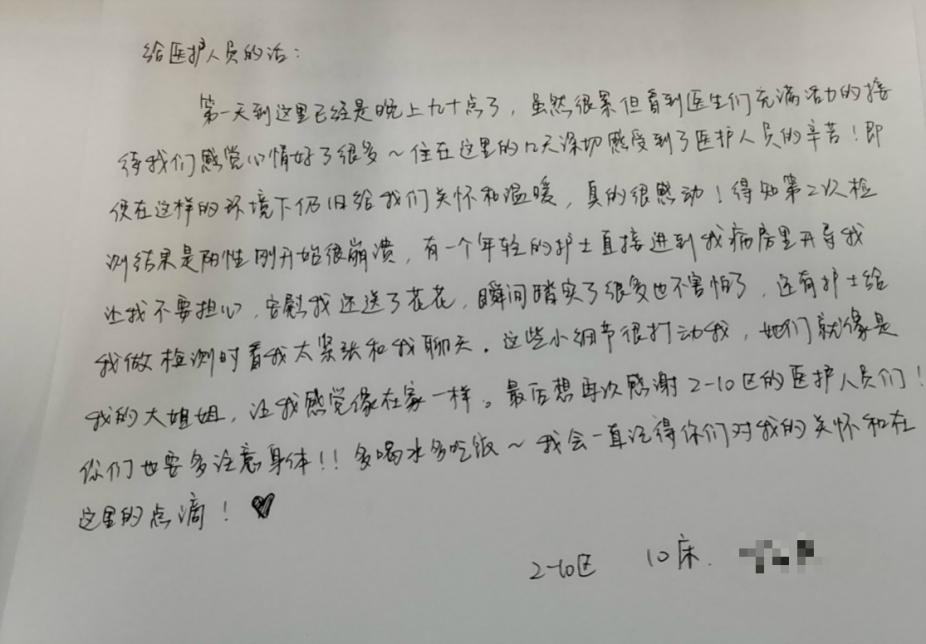 给医护人员的话：
第一天到这里已经是晚上九十点了，虽然很累但看到医生们充满活力的接
待我们感觉心情好了很多～住在这里的几天深切感受到了医护人员的辛苦！即
使在这样的环境下仍旧给我们关怀和温暖，真的很感动！得知第二次检
测结果是阳性刚开始很崩溃，有一个年轻的护士直接进到我病房里开导我
让我不要担心，安慰我还送了花花，瞬间踏实了很多也不害怕了，还有护士给
我做检测时看我太紧张和我聊天。这些小细节很打动我，她们就像是
我的大姐姐，让我感觉像在家一样。最后想再次感谢2-10区的医护人员们！
你们也要多注意身体！！多喝水多吃饭～我会一直记得你们对我的关怀和在
这里的点滴！♥
2-10区 10床.